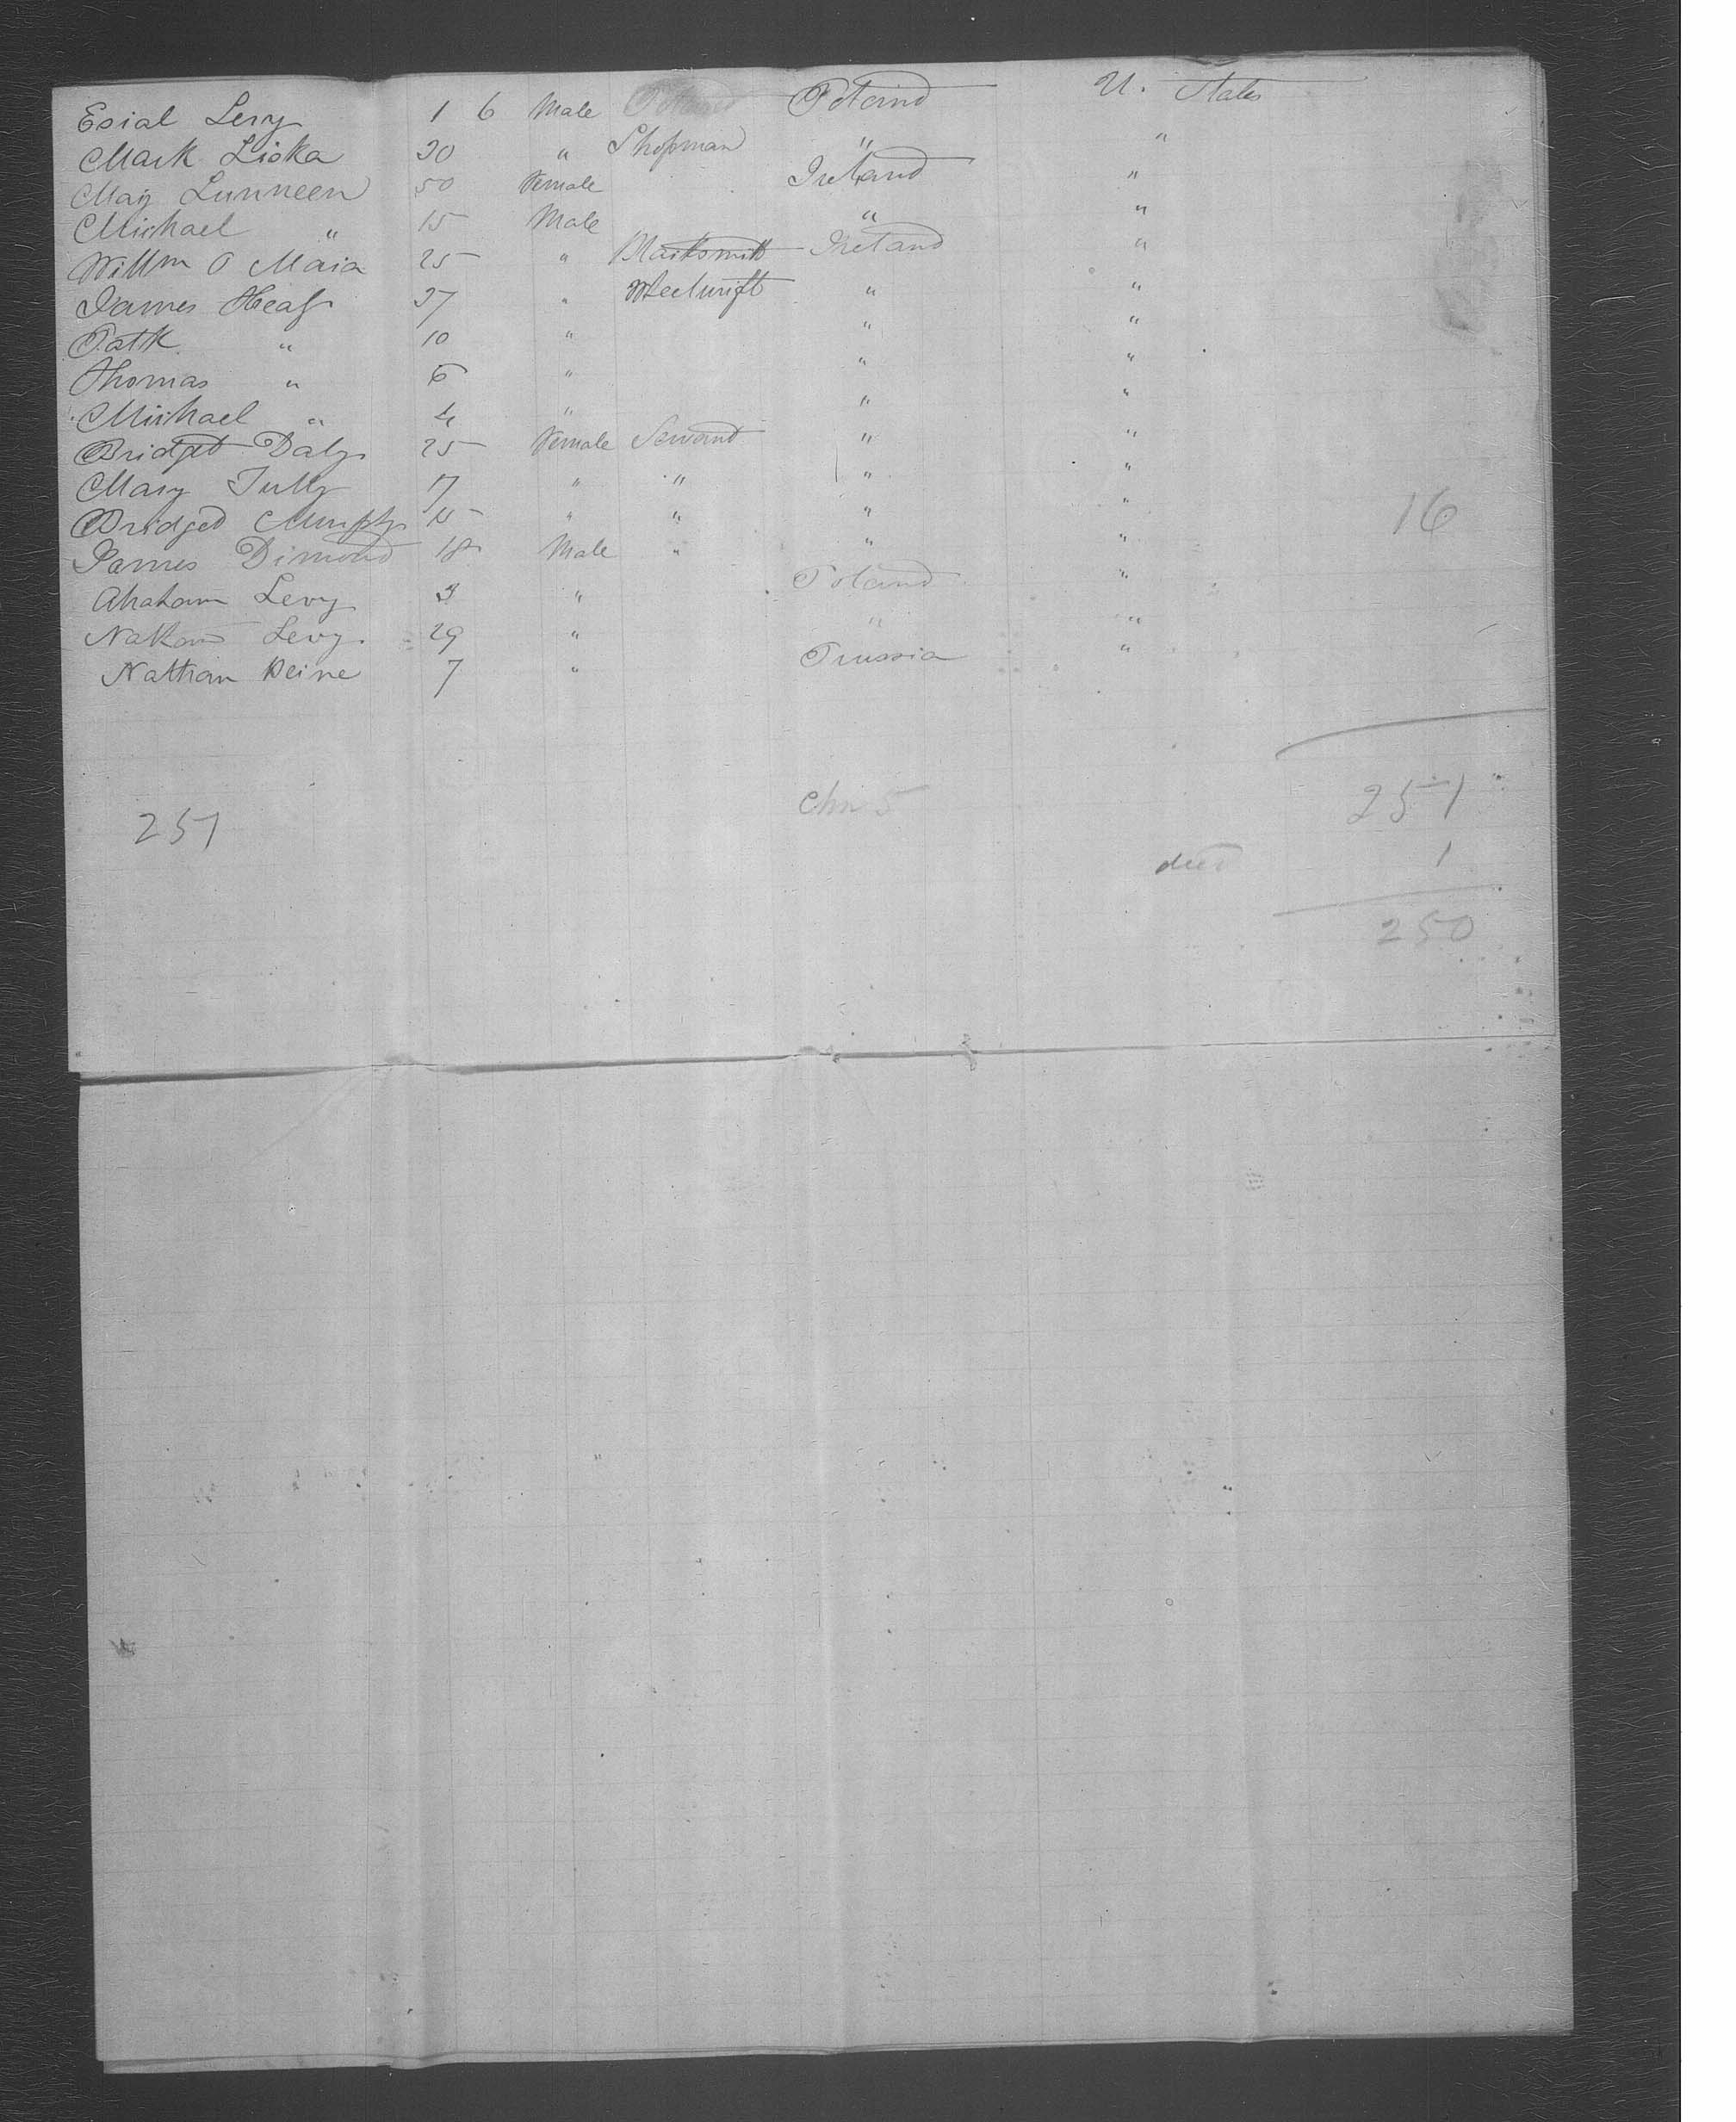 Esial Levy 1 6 Male Poland U. States
Mark Liska 30 " Shopman " "
May Lunneen 50 Female Ireland "
Michael " 15 Male " "
Willm O Maia 25 " Blacksmith Ireland "
James Heaf 37 " " "
Patk " 10 " " "
Thomas " 6 " " "
Michael " 4 " " "
Bridget Daly 25 Female Servant " "
Mary Tully 17 " " " "
Bridged Murphy " " " "
James Dimond 18 Male " " "
Abraham Levy 3 " Poland "
Nathan Levy 29 " " "
Nathan 7 " Prussia "
16
251
Chn 5
251
died 1
250